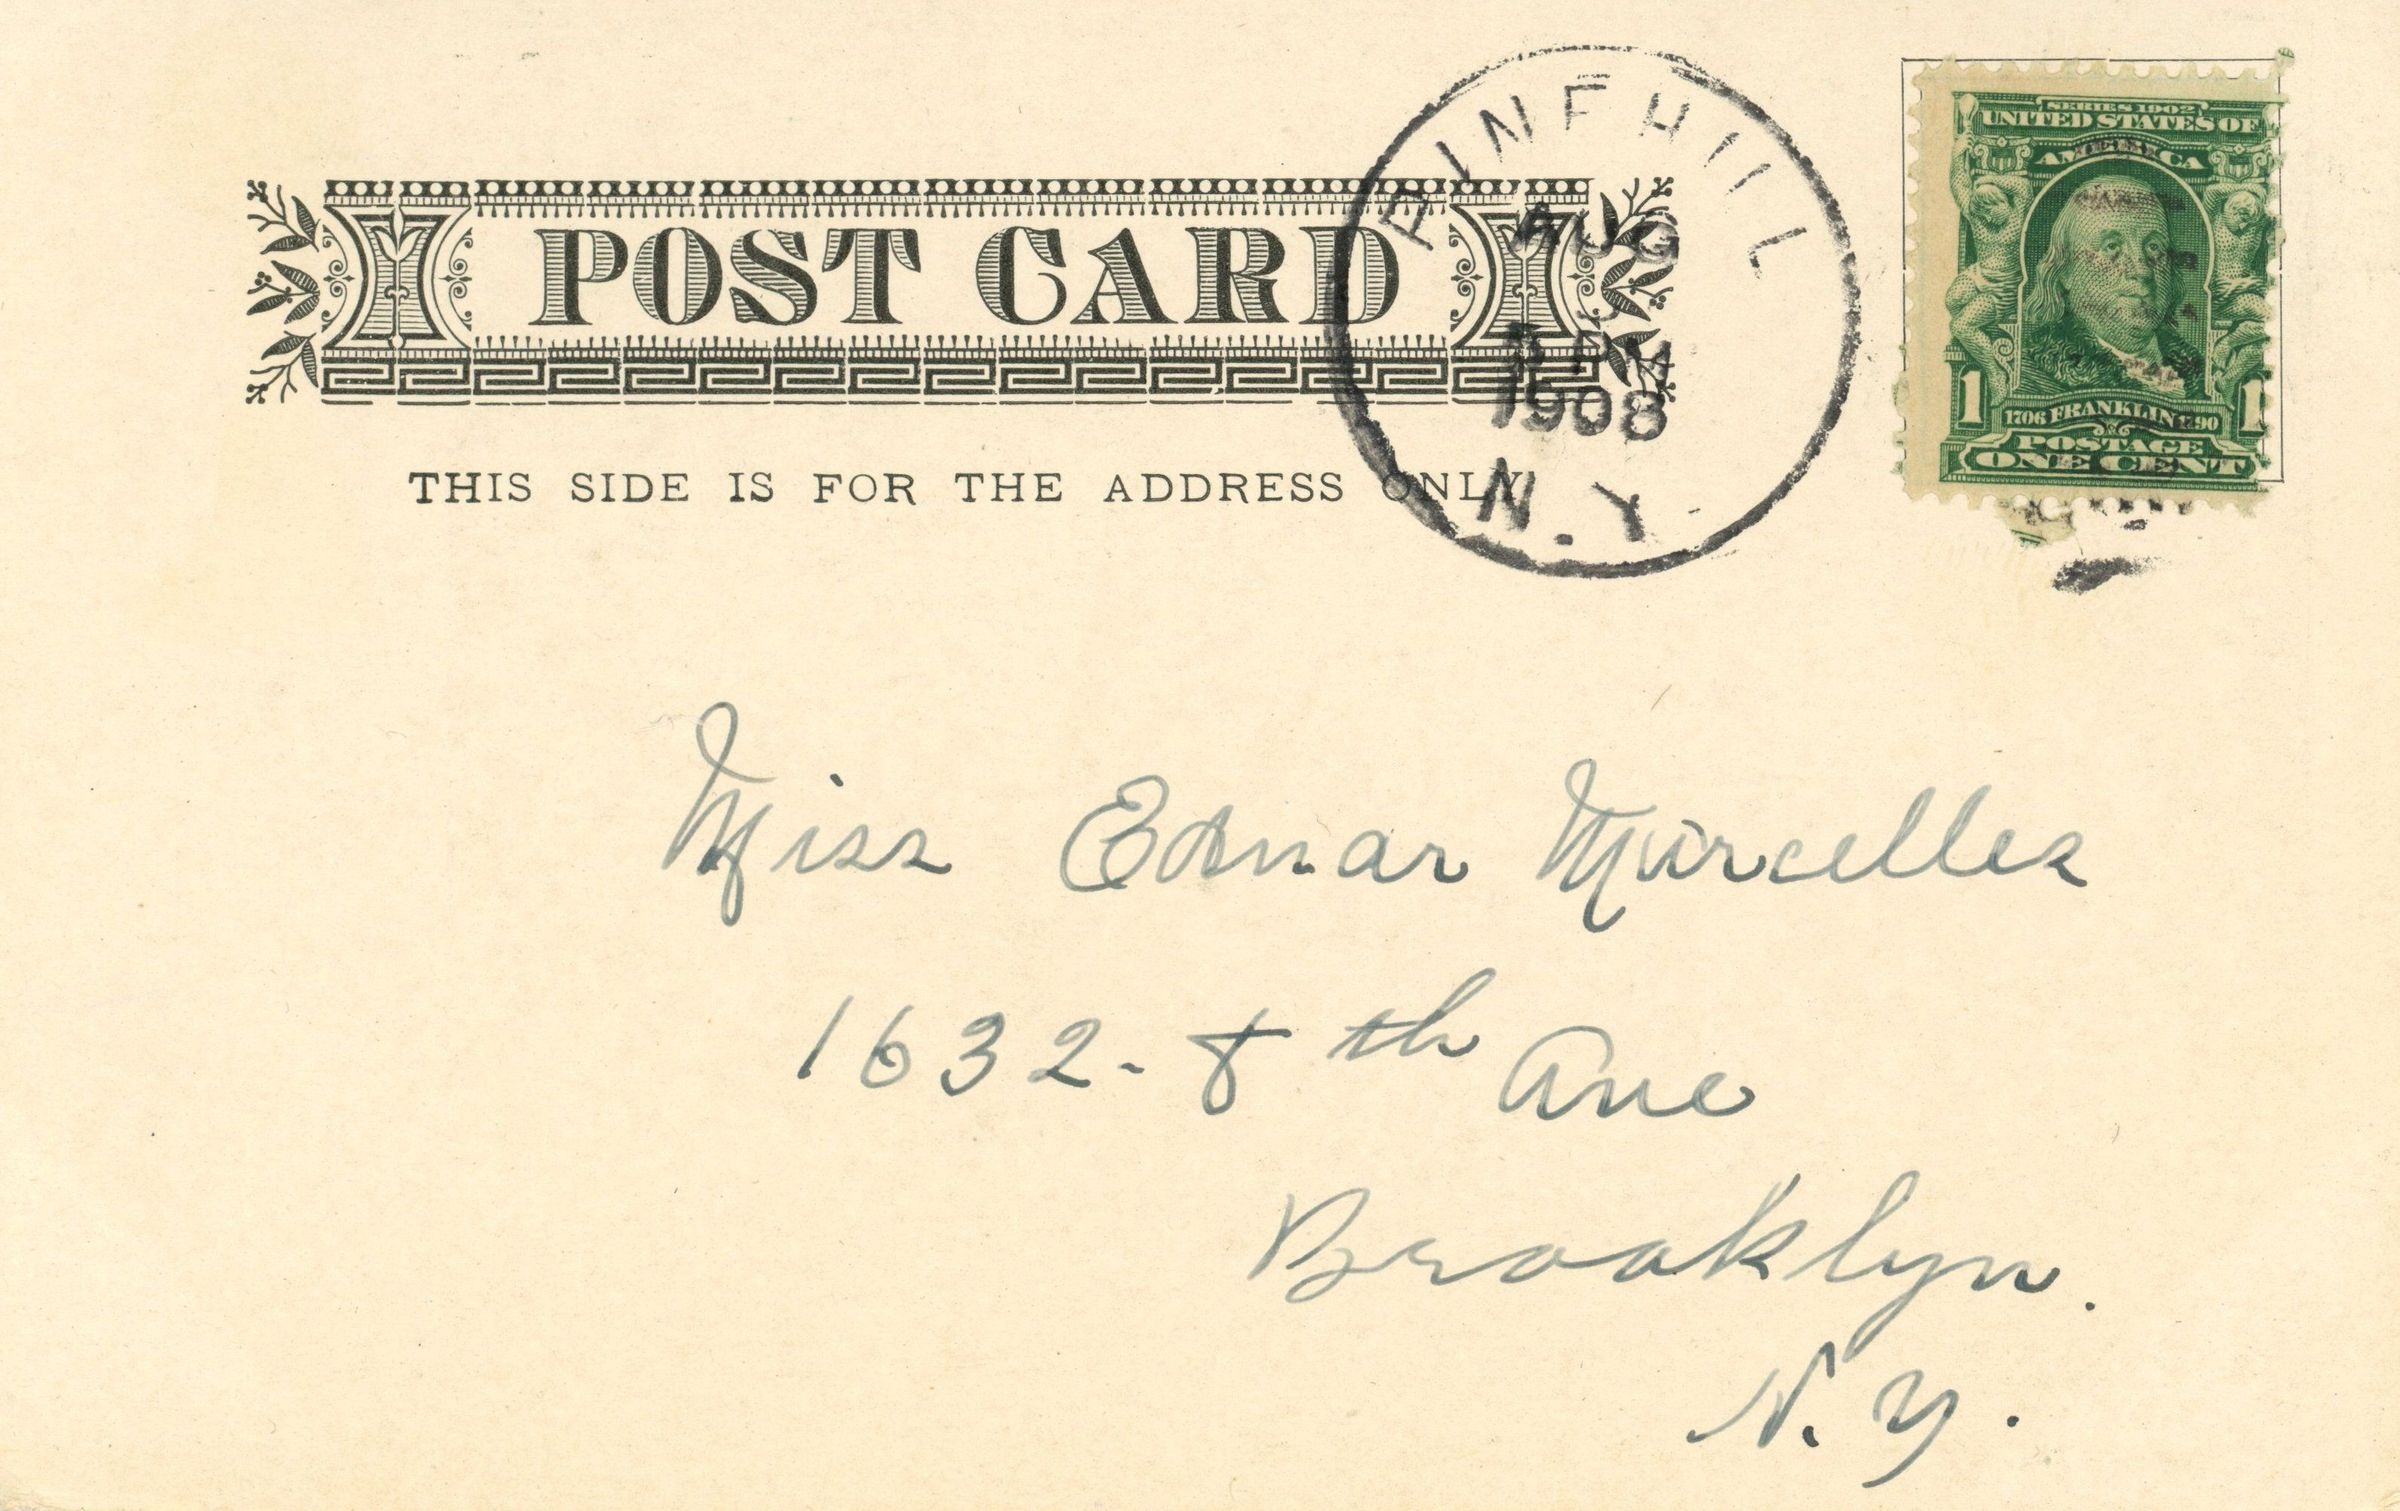 POST CARD
THIS SIDE IS FOR THE ADDRESS ONLY
PINE HILL
AUG
5 PM
1908
N.Y.
SERIES 1902
UNITED STATES OF
AMERICA
1 1
1706 FRANKLIN 1790
POSTAGE
ONE CENT
Miss Ednar Murcelles
1632-8th Ave
Brooklyn.
N.Y.